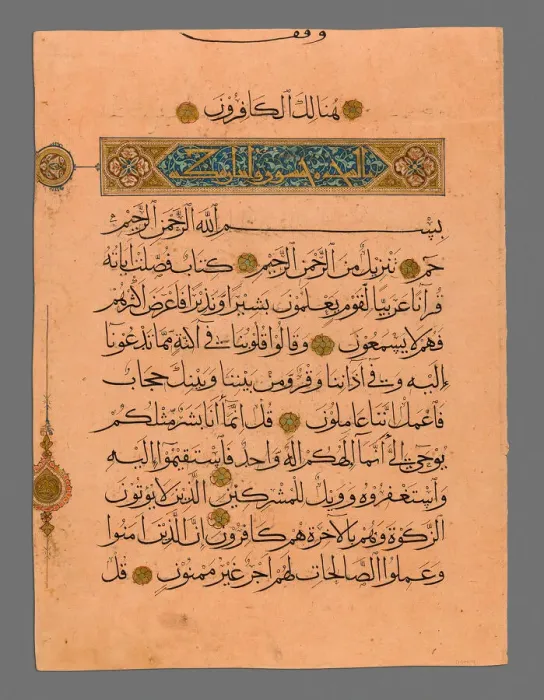 وقف
هُنَالِكَ ٱلْكَافِرُونَ
السجدة
بِسْمِ ٱللَّهِ ٱلرَّحْمَٰنِ ٱلرَّحِيمِ
حم تَنْزِيلٌ مِنَ ٱلرَّحْمَٰنِ ٱلرَّحِيمِ كِتَابٌ فُصِّلَتْ اٰيَاتُهُ
قُرْاٰنًا عَرَبِيًّا لِقَوْمٍ يَعْلَمُونَ بَشِيرًا وَنَذِيرًا فَاَعْرَضَ اَكْثَرُهُمْ
فَهُمْ لَا يَسْمَعُونَ وَقَالُوا قُلُوبُنَا فِي اَكِنَّةٍ مِمَّا تَدْعُونَا
إِلَيْهِ وَفِي اٰذَانِنَا وَقْرٌ وَمِنْ بَيْنِنَا وَبَيْنِكَ حِجَابٌ
فَاعْمَلْ اِنَّنَا عَامِلُونَ قُلْ اِنَّمَا اَنَا بَشَرٌ مِثْلُكُمْ
يُوحَىٰ اِلَيَّ اَنَّمَا اِلَٰهُكُمْ اِلَٰهٌ وَاحِدٌ فَاسْتَقِيمُوا اِلَيْهِ
وَٱسْتَغْفِرُوهُ وَوَيْلٌ لِلْمُشْرِكِينَ الَّذِينَ لَا يُؤْتُونَ
الزَّكٰوةَ وَهُمْ بِالْاٰخِرَةِ هُمْ كَافِرُونَ اِنَّ الَّذِينَ اٰمَنُوا
وَعَمِلُوا ٱلصَّالِحَاتِ لَهُمْ اَجْرٌ غَيْرُ مَمْنُونٍ قُلْ